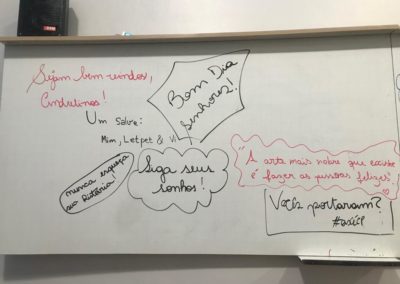 Sejam bem-vindos,
Cindutinos!
Um salve:
Mim, Letpet & Vi
Bom Dia
Senhores!
nunca esqueça
sua história!
Siga seus
sonhos!
"A arte mais nobre que existe
é fazer as pessoas felizes".
Vcês portaram?